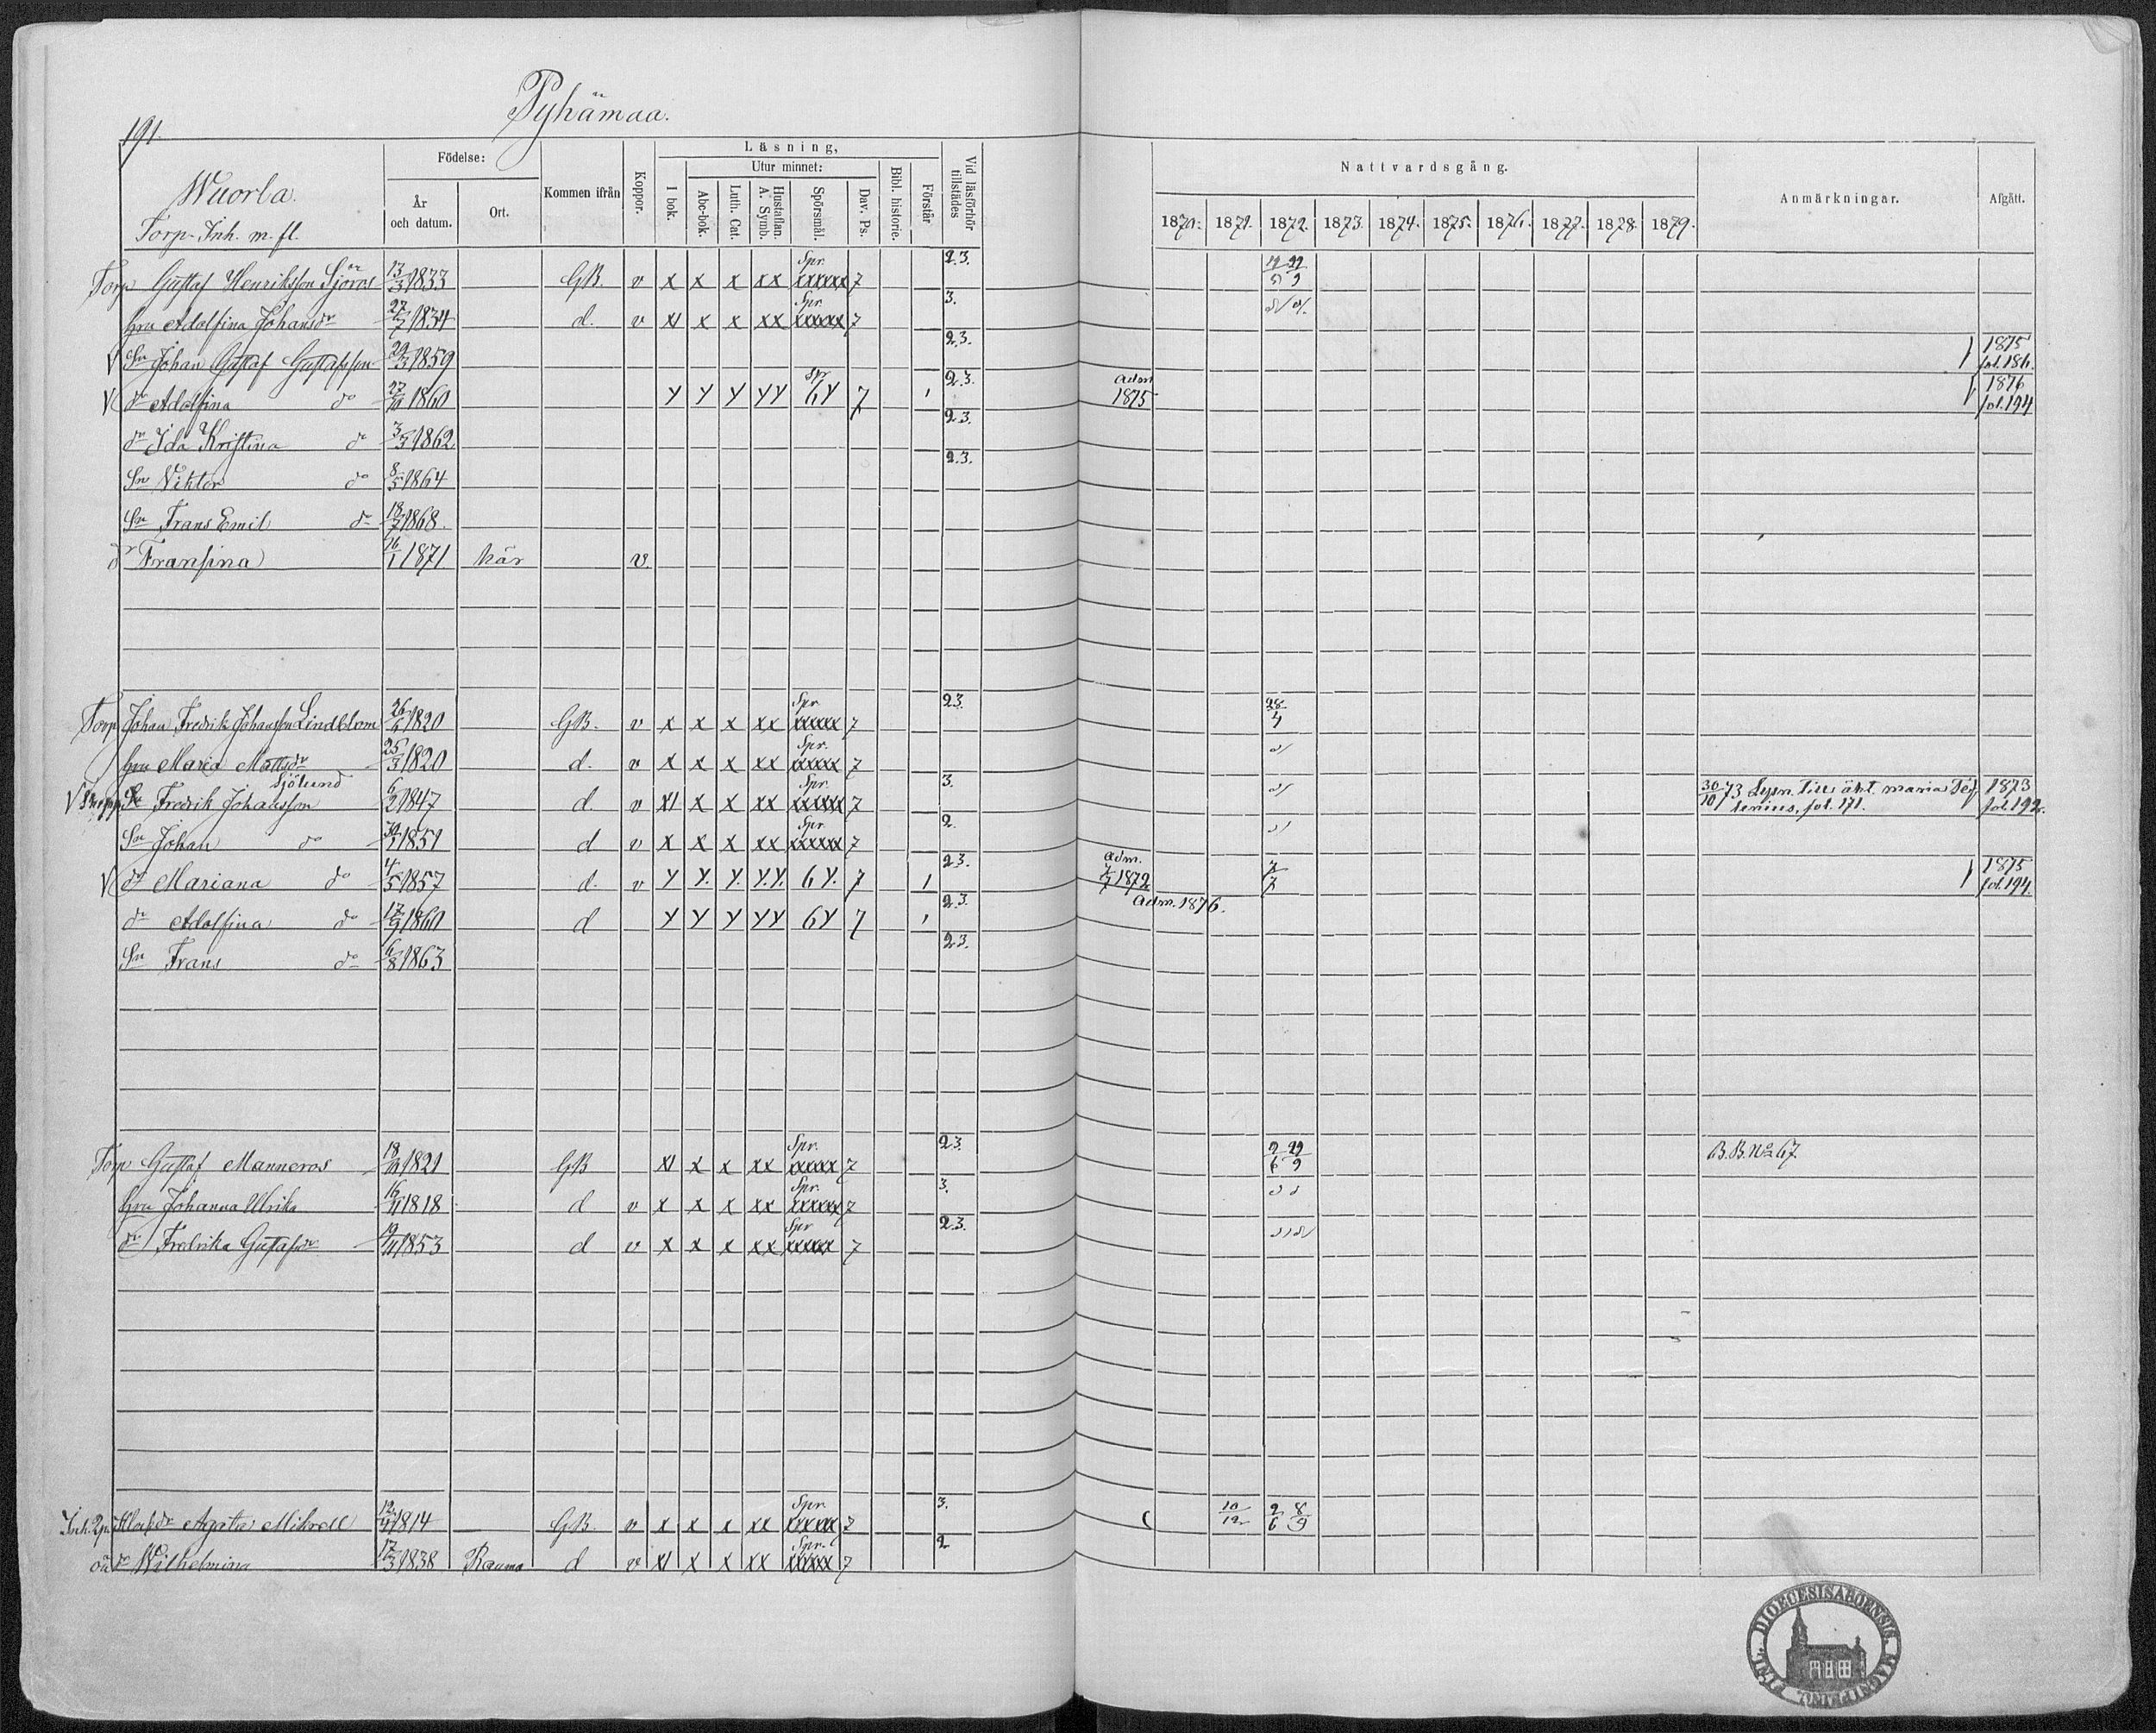 Pyhämaa.
191.
Wuorla.
Torp-Inh. m. fl.
Födelse:
År och datum.
Ort.
Kommen ifrån
Koppor.
Läsning,
I bok.
Utur minnet:
Abc-bok.
Luth. Cat.
Hustaflan. A. Symb.
Spörsmål.
Dav. Ps.
Bibl. historie.
Förstår
Vid läsförhör tillstädes
Nattvardsgång.
1870. 1871. 1872. 1873. 1874. 1875. 1876. 1877. 1878. 1879.
Anmärkningar.
Afgått.
Torp Gustaf Henriksson Sjöros 13/3 1833 GB. v x x x xx Spr. xxxxxx 7 2.3. 19/5 29/9
hru Adolfina Johansdr 27/7 1834 d. v xi x x xx Spr. xxxxxx 7 3.
V Sn Johan Gustaf Gustafsson 29/3 1859 2.3. 1875 fol. 186.
V dr Adolfina do 27/10 1860 Y Y Y YY Spr 6Y 7 1 2.3. adm 1875 1876 fol. 194
dr Ida Kristina do 3/5 1862 2.3.
Sn Viktor do 8/5 1864 2.3.
Sn Frans Emil do 18/7 1868.
dr Fransina 16/1 1871 här v
Torp Johan Fredrik Johansson Lindblom 26/6 1820 GB. v x x x xx Spr xxxxx 7 2.3 28/4
hru Maria Mattsdr 25/3 1820 d. v x x x xx Spr. xxxxx 7
Sjölund
V Sn Fredrik Johansson 6/2 1847 d. v xi x x xx Spr. xxxxxx 7 3. 30/10 73 Lysn. till äkt. maria fol. 171. 1873 fol. 192.
Sn Johan do 1851 d v x x x xx Spr xxxxxx 7 2.
V dr Mariana do 4/5 1857 d. v Y Y. Y. Y.Y. 6Y. 7 1 2.3. adm. 7/7 1872 7/7 1875 fol. 194.
dr Adolfina do 17/9 1860 d Y Y Y YY 6Y 7 1 2.3. adm. 1876.
Sn Frans do 6/8 1863 2.3.
Torp Gustaf Manneros 18/10 1821 GB xi x x xx Spr. xxxxx 7 2.3. 2/6 29/9 B.B. No 67
hru Johanna Ulrika 16/11 1818 d v x x x xx Spr. xxxxxx 7 3.
dr Fredrika Gustafsdr 19/11 1853 d v x x x xx Spr xxxxx 7 2.3.
Inh. Agata Mikrell 12/4 1814 GB. v x x x xx Spr xxxxx 7 3. 10/12 2/6 8/9
dr Wilhelmina 17/3 1838 Rauma d v xi x x xx Spr. xxxxx 7 2
DIOECESIS ABOENSIS